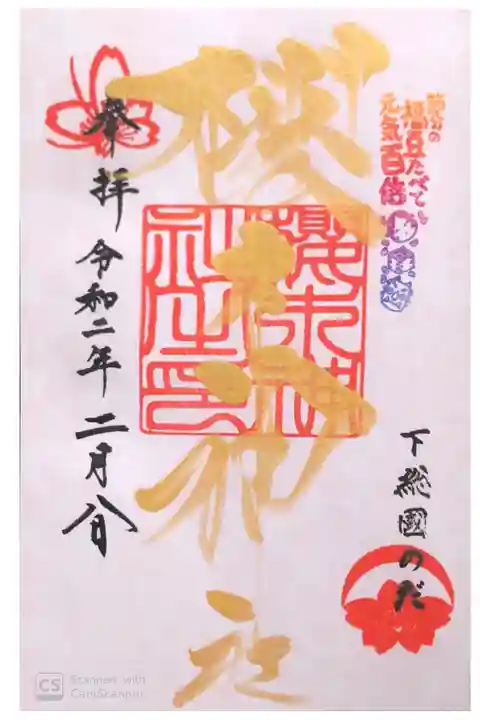 節分の
福豆たべて
元気百倍
下総國のだ
櫻木神社
櫻木神
社之印
奉拝 令和二年二月八日
CS Scanned with
CamScanner